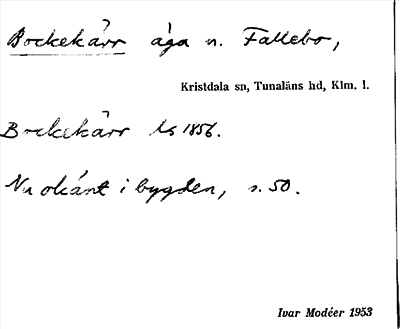 Bockekärr äga n. Fallebo,
Kristdala sn, Tunaläns hd, Klm. l.
Bockekärr Ls 1856.
Nu okänt i bygden, s. 50.
Ivar Modéer 1953